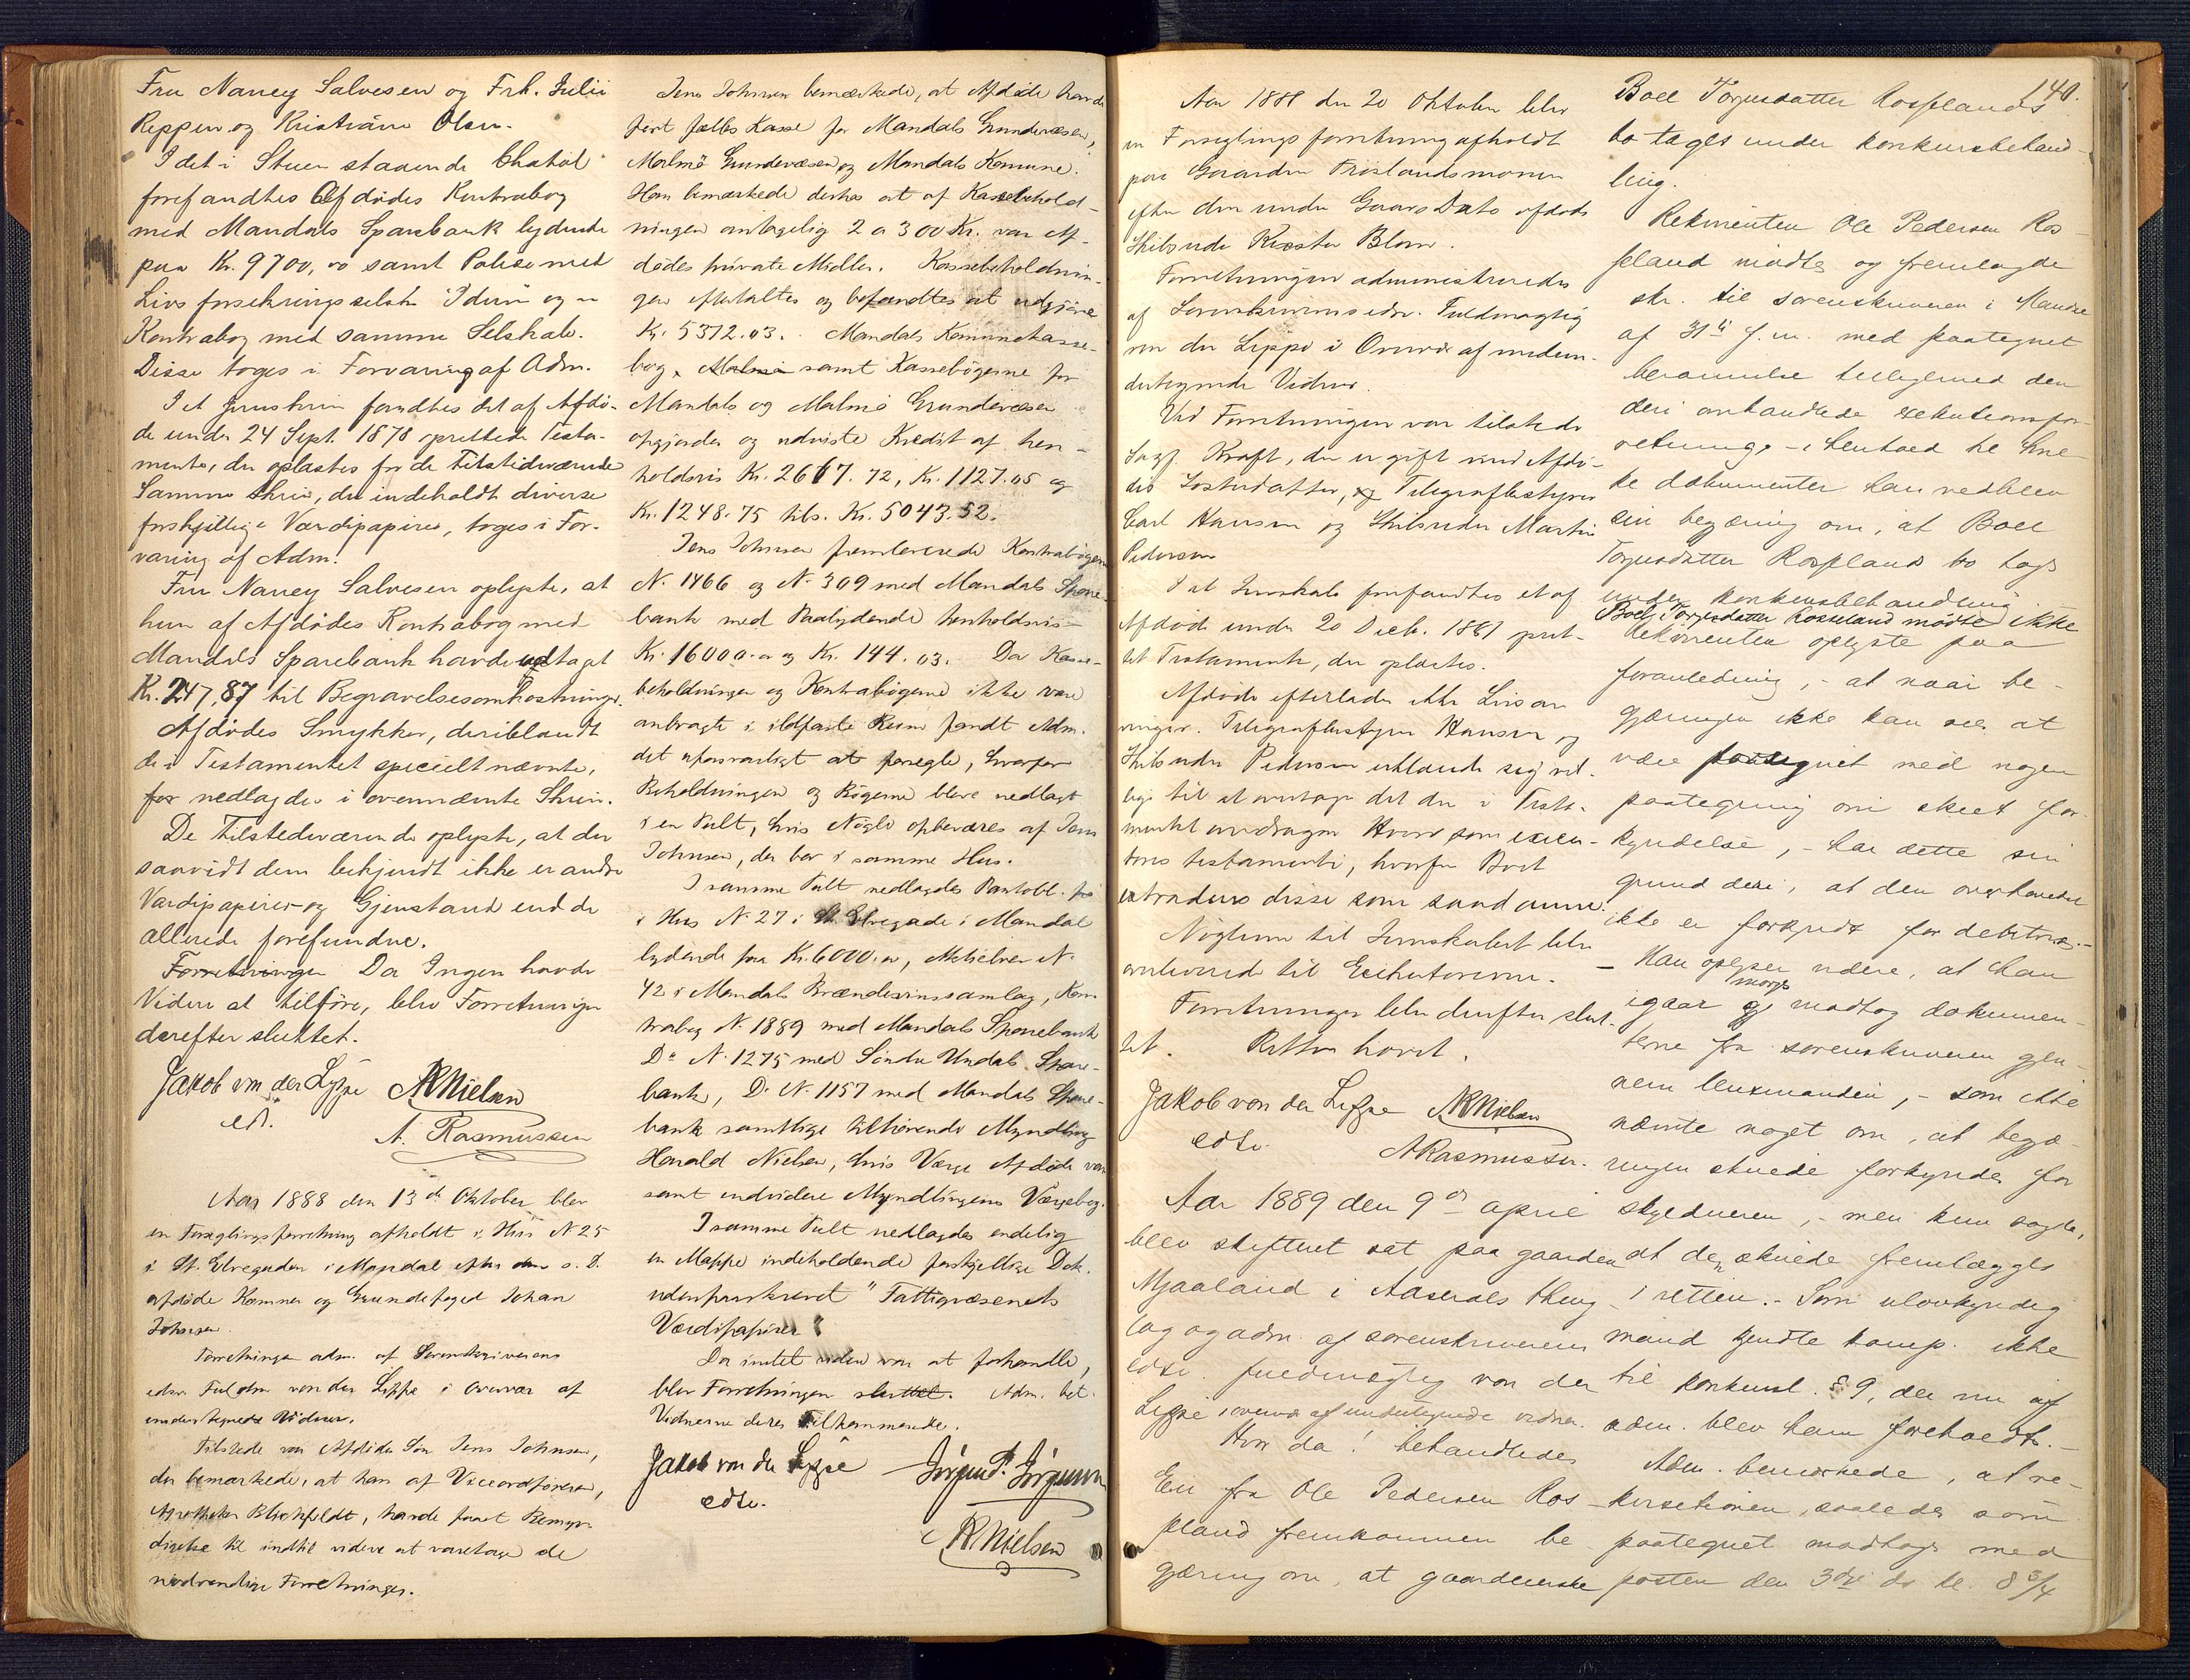 Fru Nancy Salvesen og Frk. Julii
Reppen og Kristiane Olsen.
I det i Stuen staaende Chatol
forefandtes Afdødes Kontrabog
med Mandals Sparebank lydende
paa Kr. 9700,00 samt Police med
Livsforsikringsselsk. "Idun" og en
Kontrabog med samme Selskab.
Disse toges i Forvaring af Adm.
I et Jernskrin fandtes det af Afdø-
de under 24 Sept. 1878 oprettede Testa-
mente, der oplæstes for de Tilstedeværende
Samme Skrin, der indeholdt diverse
forskjellige Værdipapirer, toges i For-
varing af Adm.
Fru Nancy Salvesen oplyste, at
hun af Afdødes Kontrabog med
Mandals Sparebank havde udtaget
Kr. 247,87 til Begravelsesomkostninger.
Afdødes Smykker, deriblandt
de i Testamentet specielt nævnte,
for nedlagdes i ovennævnte Skrin.
De Tilstedeværende oplyste, at der
saavidt dem bekjendt ikke er andre
Værdipapirer og Gjenstande end de
allerede forefundne.
Forretningen Da Ingen havde
Videre at tilføre, blev Forretningen
derefter sluttet.
Jakob von der Lippe AKNielsen
edsv.
A. Rasmussen
Aar 1888 den 13de Oktober blev
en Forseglingsforretning afholdt i Hus N 25
i St. Elvegaden i Mandal efter den s. D.
afdøde Kæmner og Grundefoged Johan
Johnsen.
Forretningen adm. af Sorenskriverens
edsv. Fuldm. von der Lippe i Overvær af
undertegnede Vidner.
Tilstede var Afdødes Søn Jens Johnsen,
der bemærkede, at han af Viceordføreren,
Apotheker Blichfeldt, havde faaet Bemyn-
digelse til indtil videre at varetage de
nødvendige Forretninger.
Jens Johnsen bemærkede, at Afdøde havde
ført fælles Kasse for Mandals Grundevæsen,
Malmø Grundevæsen og Mandals Komune.
Han bemærkede derhos at af Kassebehold-
ningen antagelig 2 a 300 Kr. var Af-
dødes private Midler. Kassebeholdnin-
gen eftertaltes og befandtes at udgjøre
Kr. 5312.03. Mandals Komunekasse-
bog, Malmø samt Kassebøgerne for
Mandals og Malmø Grundevæsen
opgjordes og udviste Kredit af hen-
holdsvis Kr. 2667.72, Kr. 1127.05 og
Kr. 1248.75 tils. Kr. 5043.52.
Jens Johnsen fremleverede Kontrabøgerne
N. 1466 og N. 309 med Mandals Spare-
bank med Paalydende henholdsvis
Kr. 16000.00 og Kr. 144.03. Da Kasse-
beholdningen og Kontrabøgerne ikke vare
anbragte i ildfaste Rum fandt Adm.
det uforsvarligt at forsegle, hvorfor
Beholdningen og Bøgerne bleve nedlagt
i en Pult, hvis Nøgle opbevares af Jens
Johnsen, der bor i samme Hus.
I samme Pult nedlagdes Pantobl. fra
i Hus N. 27 i St. Elvegade i Mandal
lydende paa Kr. 6000.00, Aktiebrev N.
42 i Mandals Brændevinssamlag, Kon-
trabog N. 1889 med Mandals Sparebank
Do N. 1275 med Søndre Undals Spare-
bank, Do N. 1157 med Mandals Spare-
bank samtlige tilhørende Myndling
Harald Nielsen, hvis Værge Afdøde var
samt endvidere Myndlingens Værgebog.
I samme Pult nedlagdes endelig
en Mappe indeholdende forskjellige Dok.
udenpaaskrevet "Fattigvæsenets
Værdipapirer"
Da intet videre var at forhandle,
blev Forretningen sluttet. Adm. bet.
Vidnerne deres Tilkommende.
Jakob von der Lippe Jørgen P. Jørgensen
edsv.
AKNielsen
140.
Aar 1888 den 20 Oktober blev
en Forseglingsforretning afholdt
paa Gaarden Frøslandsmonen
efter den under Gaars Dato afdøde
Skibsrheder Kristen Blom.
Forretningen administreredes
af Sorenskriverens edsv. Fuldmægtig
von der Lippe i Overvær af neden-
dertegnede Vidner.
Ved Forretningen var tilstede
Sagf. Kraft, der er gift med Afdø-
des Søsterdatter, og Telegrafbestyrer
Carl Hansen og Skibsreder Martin
Pedersen
I et Jernskab forefandtes et af
Afdøde under 20 Decb. 1881 opret-
tet Testamente, der oplæstes.
Afdøde efterlader ikke Livsar-
vinger. Telegrafbestyrer Hansen og
Skibsreder Pedersen erklærede sig vil-
lige til at overtage det dem i Testa-
mentet overdragne Hverv som execu-
tores testamenti, hvorfor Boet
extraderes disse som saadanne.
Nøglerne til Jernskabet blev
overleveret til Exekutorerne.
Forretningen blev derefter slut-
tet. Retten hævet.
Jakob von der Lippe AKNielsen
edsv. ARasmussen.
Aar 1889 den 9de april
blev skifteret sat paa gaarden
Mjaaland i Aaserals thing-
lag og adm. af sorenskriverens
edsv. fuldmægtig von der
Lippe i overvær af undertegnede vidner.
Hvor da! behandledes
En fra Ole Pedersen Ros-
sland fremkommen be-
gjæring om, at gaardenerske
Boel Torjusdatter Rosslands
bo tages under konkursbehand-
ling.
Rekvirenten Ole Pedersen Ros-
sland mødte og fremlagde
skr. til sorenskriveren i Mandal
af 31te f.m. med paategnet
berammelse tilligemed den
deri omhandlede exekutionsfor-
retning. - I henhold til frem-
te dokumenter han vedblev
sin begjæring om, at Boel
Torjusdatter Rosslands bo tages
under konkursbehandling
Boel Torjusdatter Rosseland mødte ikke
Rekvirenten oplyste paa
foranledning, - at naar be-
gjæringen ikke kan sees at
være paategnet med nogen
paategning om skeet for-
kyndelse, - har dette sin
grund deri, at den overhovedet
ikke er forkyndt for debitrix.-
- Han oplyser videre, at han
igaar morges modtog dokumen-
terne fra sorenskriveren gjen-
nem lensmanden, - som ikke
nævnte noget om, at begjæ-
ringen skulde forkyndes for
skyldneren, - men kun sagde,
at den skulde fremlægges
i retten.- Som ulovkyndig
mand kjendte komp. ikke
til konkursl. § 9, der nu af
adm. blev ham foreholdt.-
Adm. bemærkede, at re-
kvisitionen, saaledes som
paategnet modtoges med
posten den 3die ds. kl. 8 3/4